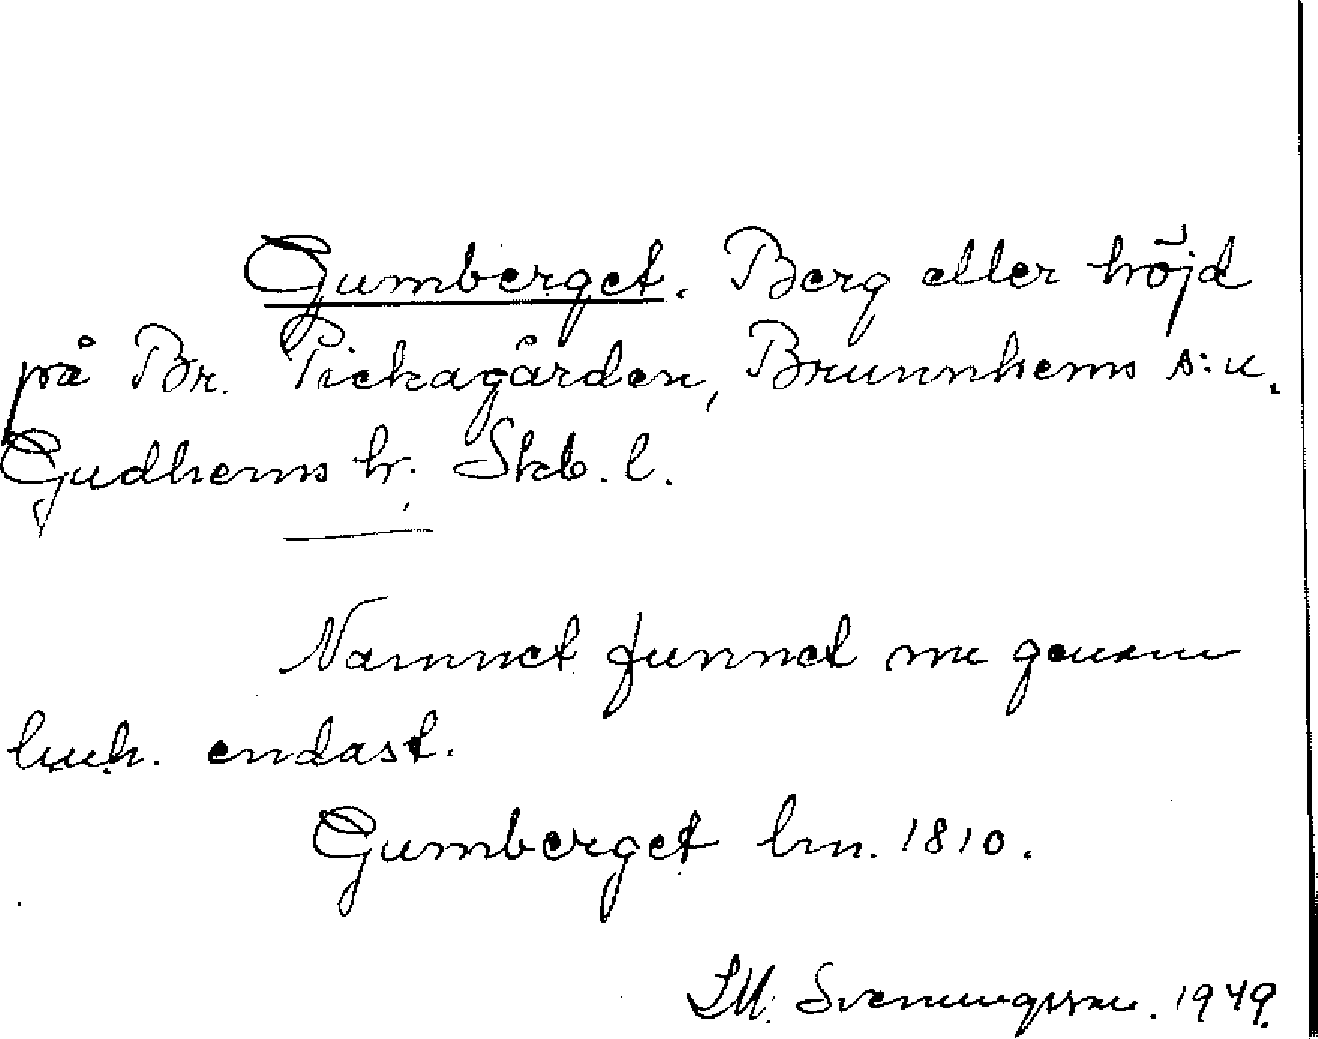 Gumberget. Berg eller höjd
på Br. Pickagården, Brunnhems s:n.
Gudhems hr. Skb. l.
Namnet funnet nu genom
endast.
Gumberget lm. 1810.
Sveningsson. 1949.